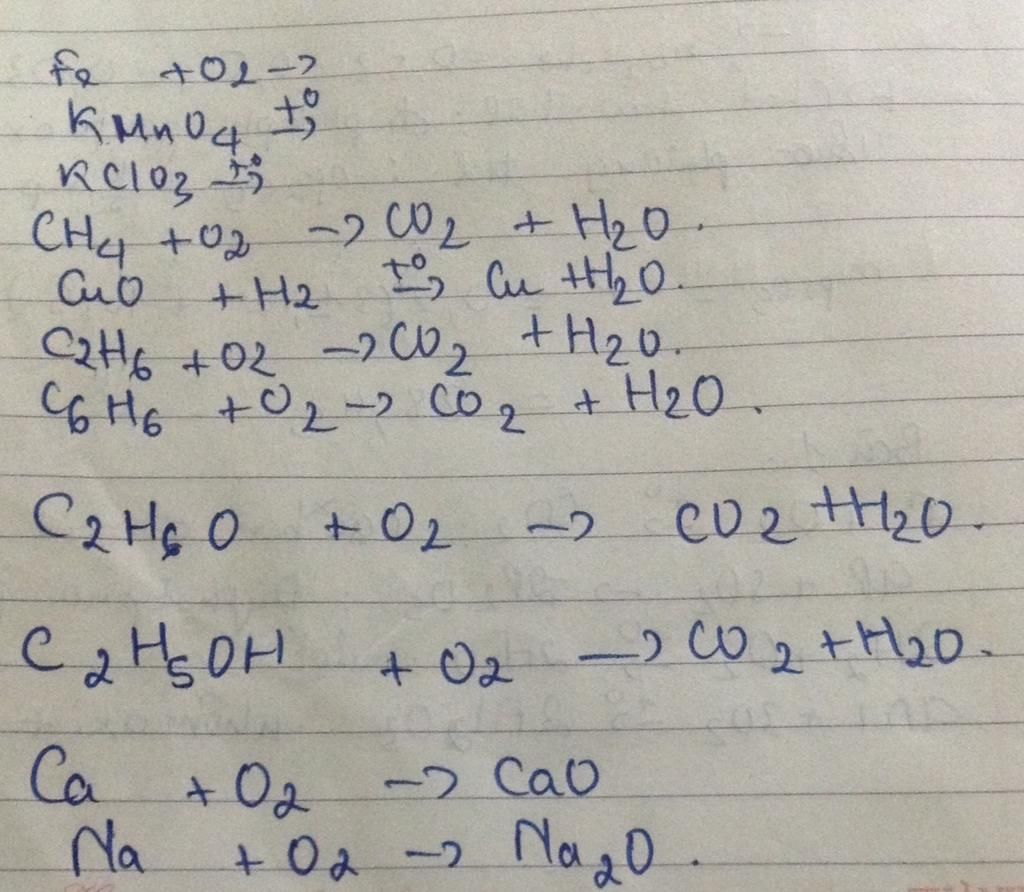 Fe + O2 →
KMnO4 t° →
KClO3 t° →
CH4 + O2 → CO2 + H2O.
CuO + H2 t° → Cu + H2O.
C2H6 + O2 → CO2 + H2O.
C6H6 + O2 → CO2 + H2O.
C2H6O + O2 → CO2 + H2O.
C2H5OH + O2 → CO2 + H2O.
Ca + O2 → CaO
Na + O2 → Na2O.